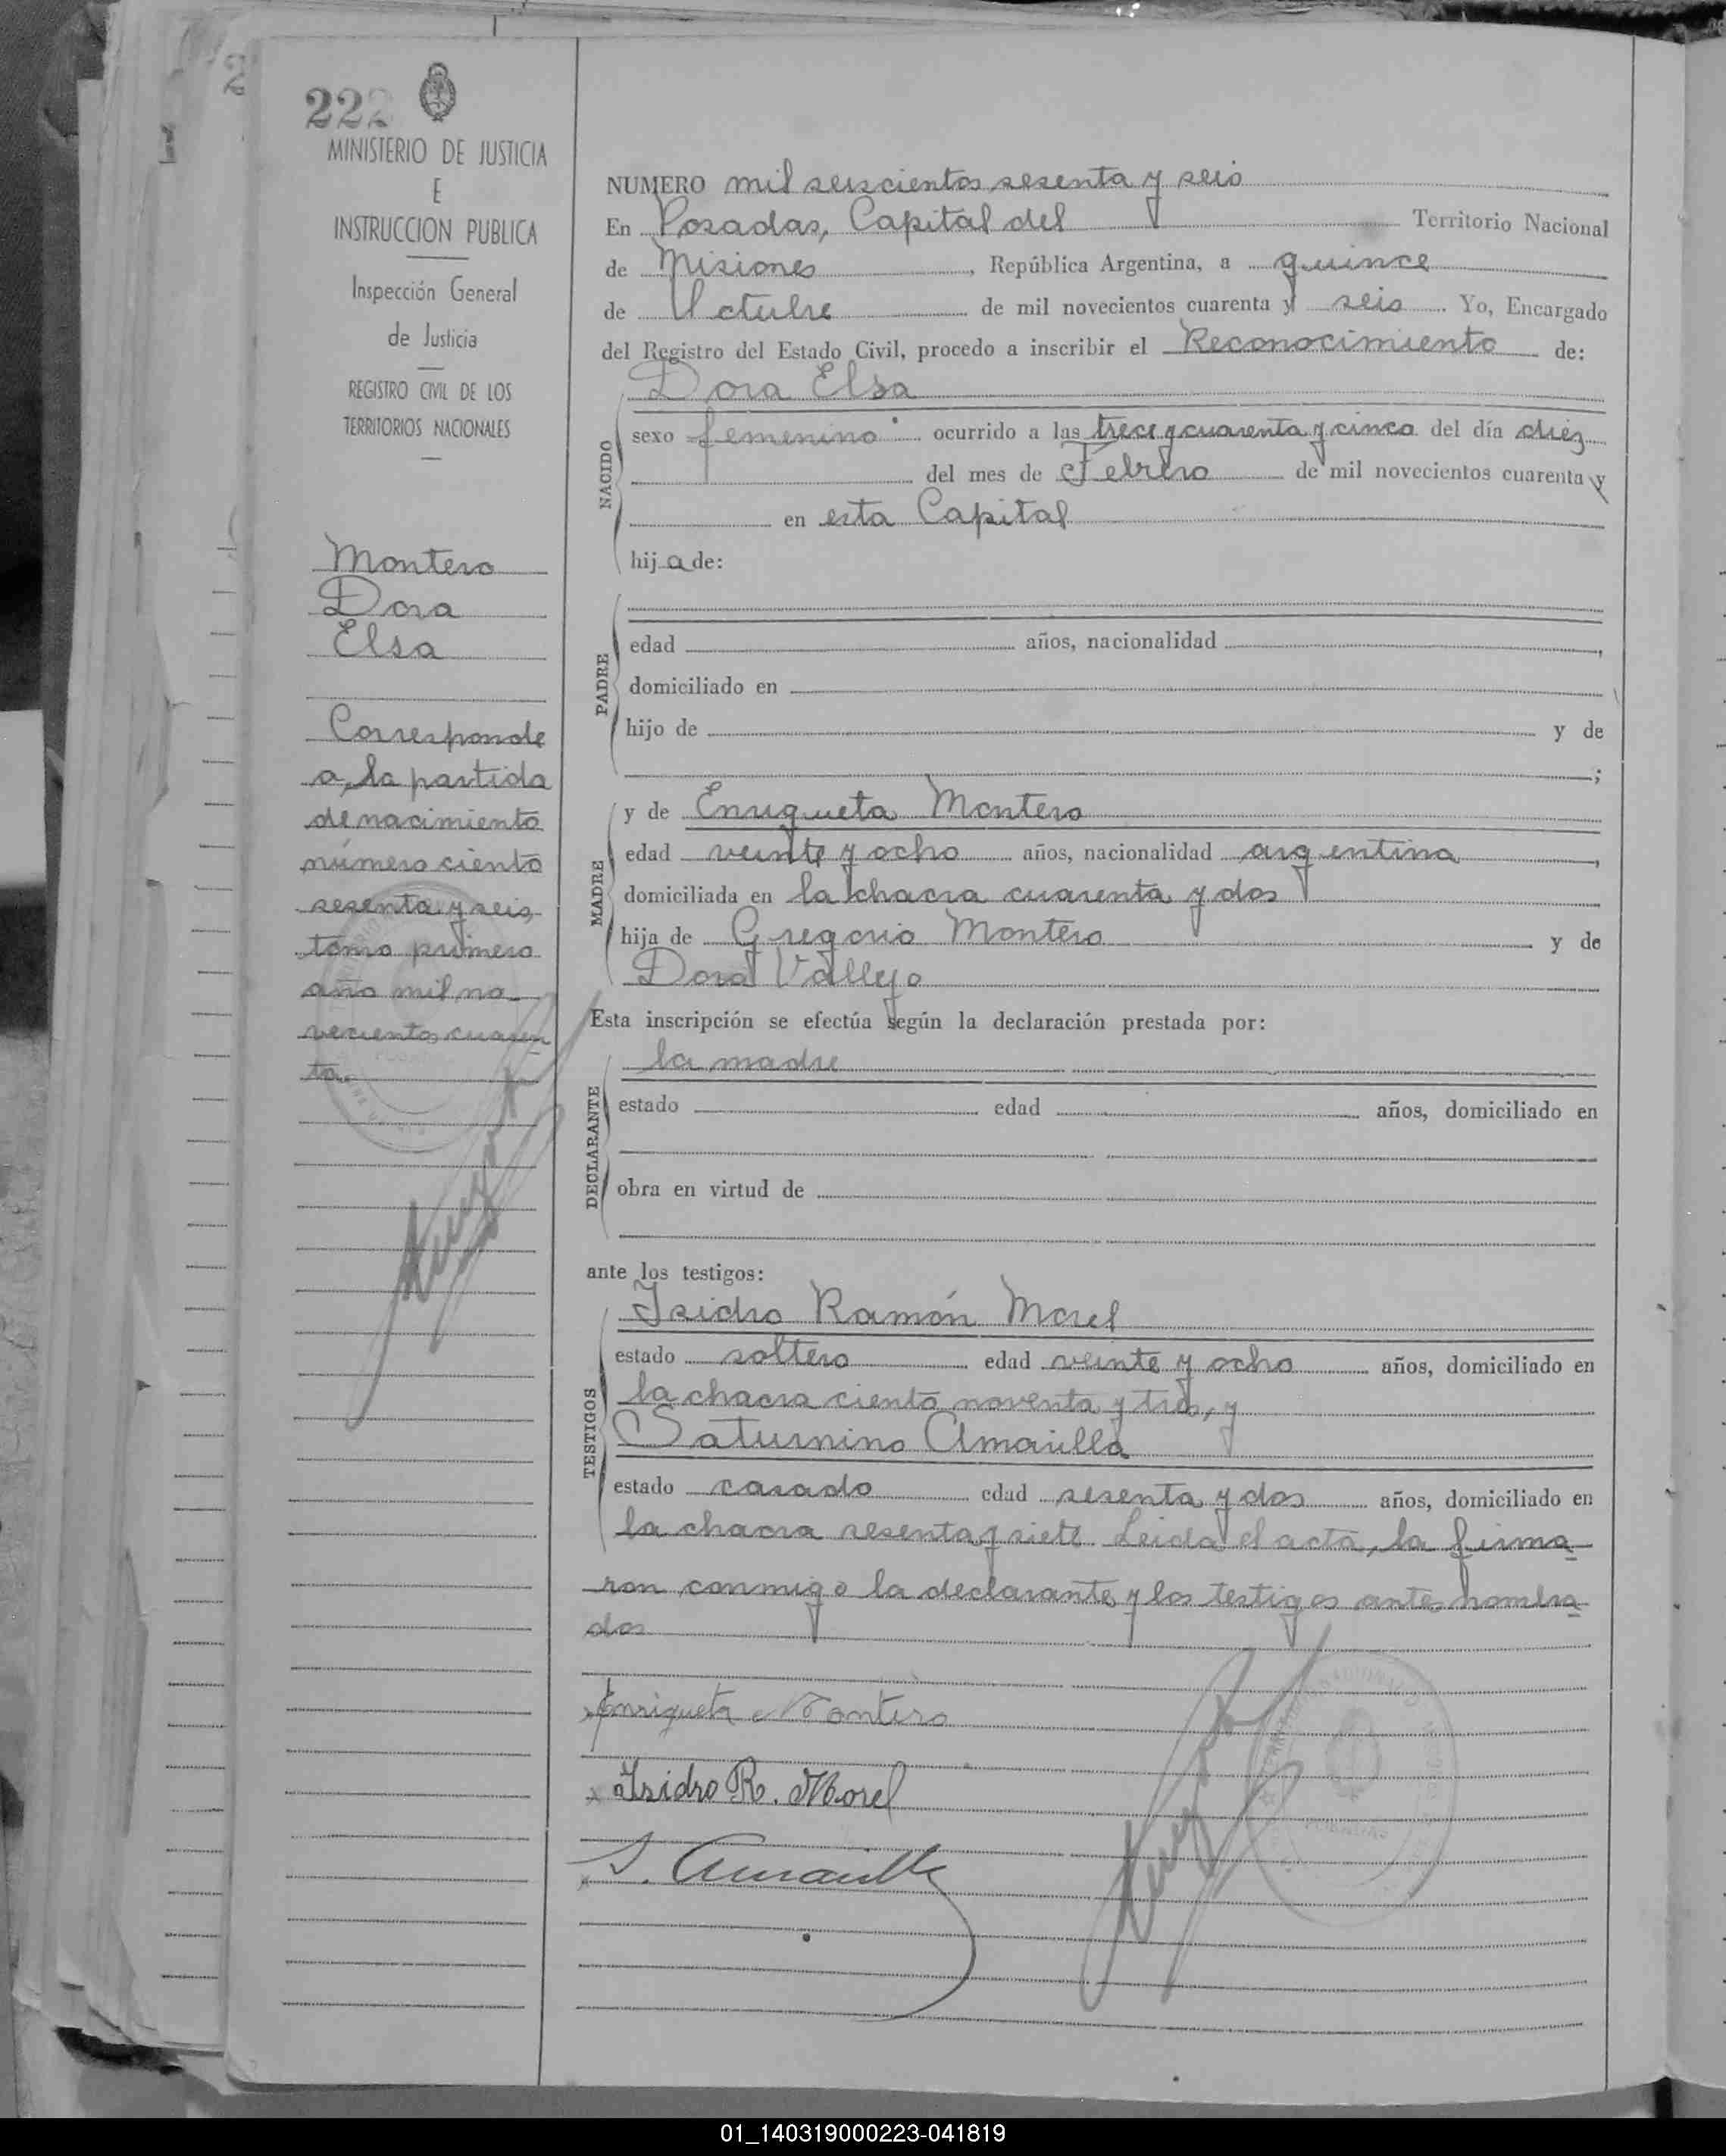 222
MINISTERIO DE JUSTICIA
E
INSTRUCCION PUBLICA
Inspección General
de Justicia
REGISTRO CIVIL DE LOS
TERRITORIOS NACIONALES
Montero
Dora
Elsa
Corresponde
a la partida
de nacimiento
número ciento
sesenta y seis,
tomo primero
año mil no-
vecientos cuaren
ta.
NUMERO mil seiscientos sesenta y seis
En Posadas, Capital del Territorio Nacional
de Misiones, República Argentina, a quince
de Octubre de mil novecientos cuarenta y seis. Yo, Encargado
del Registro del Estado Civil, procedo a inscribir el Reconocimiento de:
NACIDO
Dora Elsa
sexo femenino ocurrido a las trece y cuarenta y cinco del día diez
del mes de Febrero de mil novecientos cuarenta y
en esta Capital
hija de:
PADRE
edad años, nacionalidad ,
domiciliado en
hijo de y de
;
MADRE
y de Enriqueta Montero
edad veinte y ocho años, nacionalidad argentina,
domiciliada en la chacra cuarenta y dos
hija de Gregorio Montero y de
Dora Vallejo
Esta inscripción se efectúa según la declaración prestada por:
DECLARANTE
la madre
estado edad años, domiciliado en
obra en virtud de
ante los testigos:
TESTIGOS
Isidro Ramón Morel
estado soltero edad veinte y ocho años, domiciliado en
la chacra ciento noventa y tres, y
Saturnino Amarilla
estado casado edad sesenta y dos años, domiciliado en
la chacra sesenta y siete. Leida el acta, la firma-
ron conmigo la declarante y los testigos antes nombra-
dos
Enriqueta Montero
x Isidro R. Morel
S. Amarilla
01_140319000223-041819